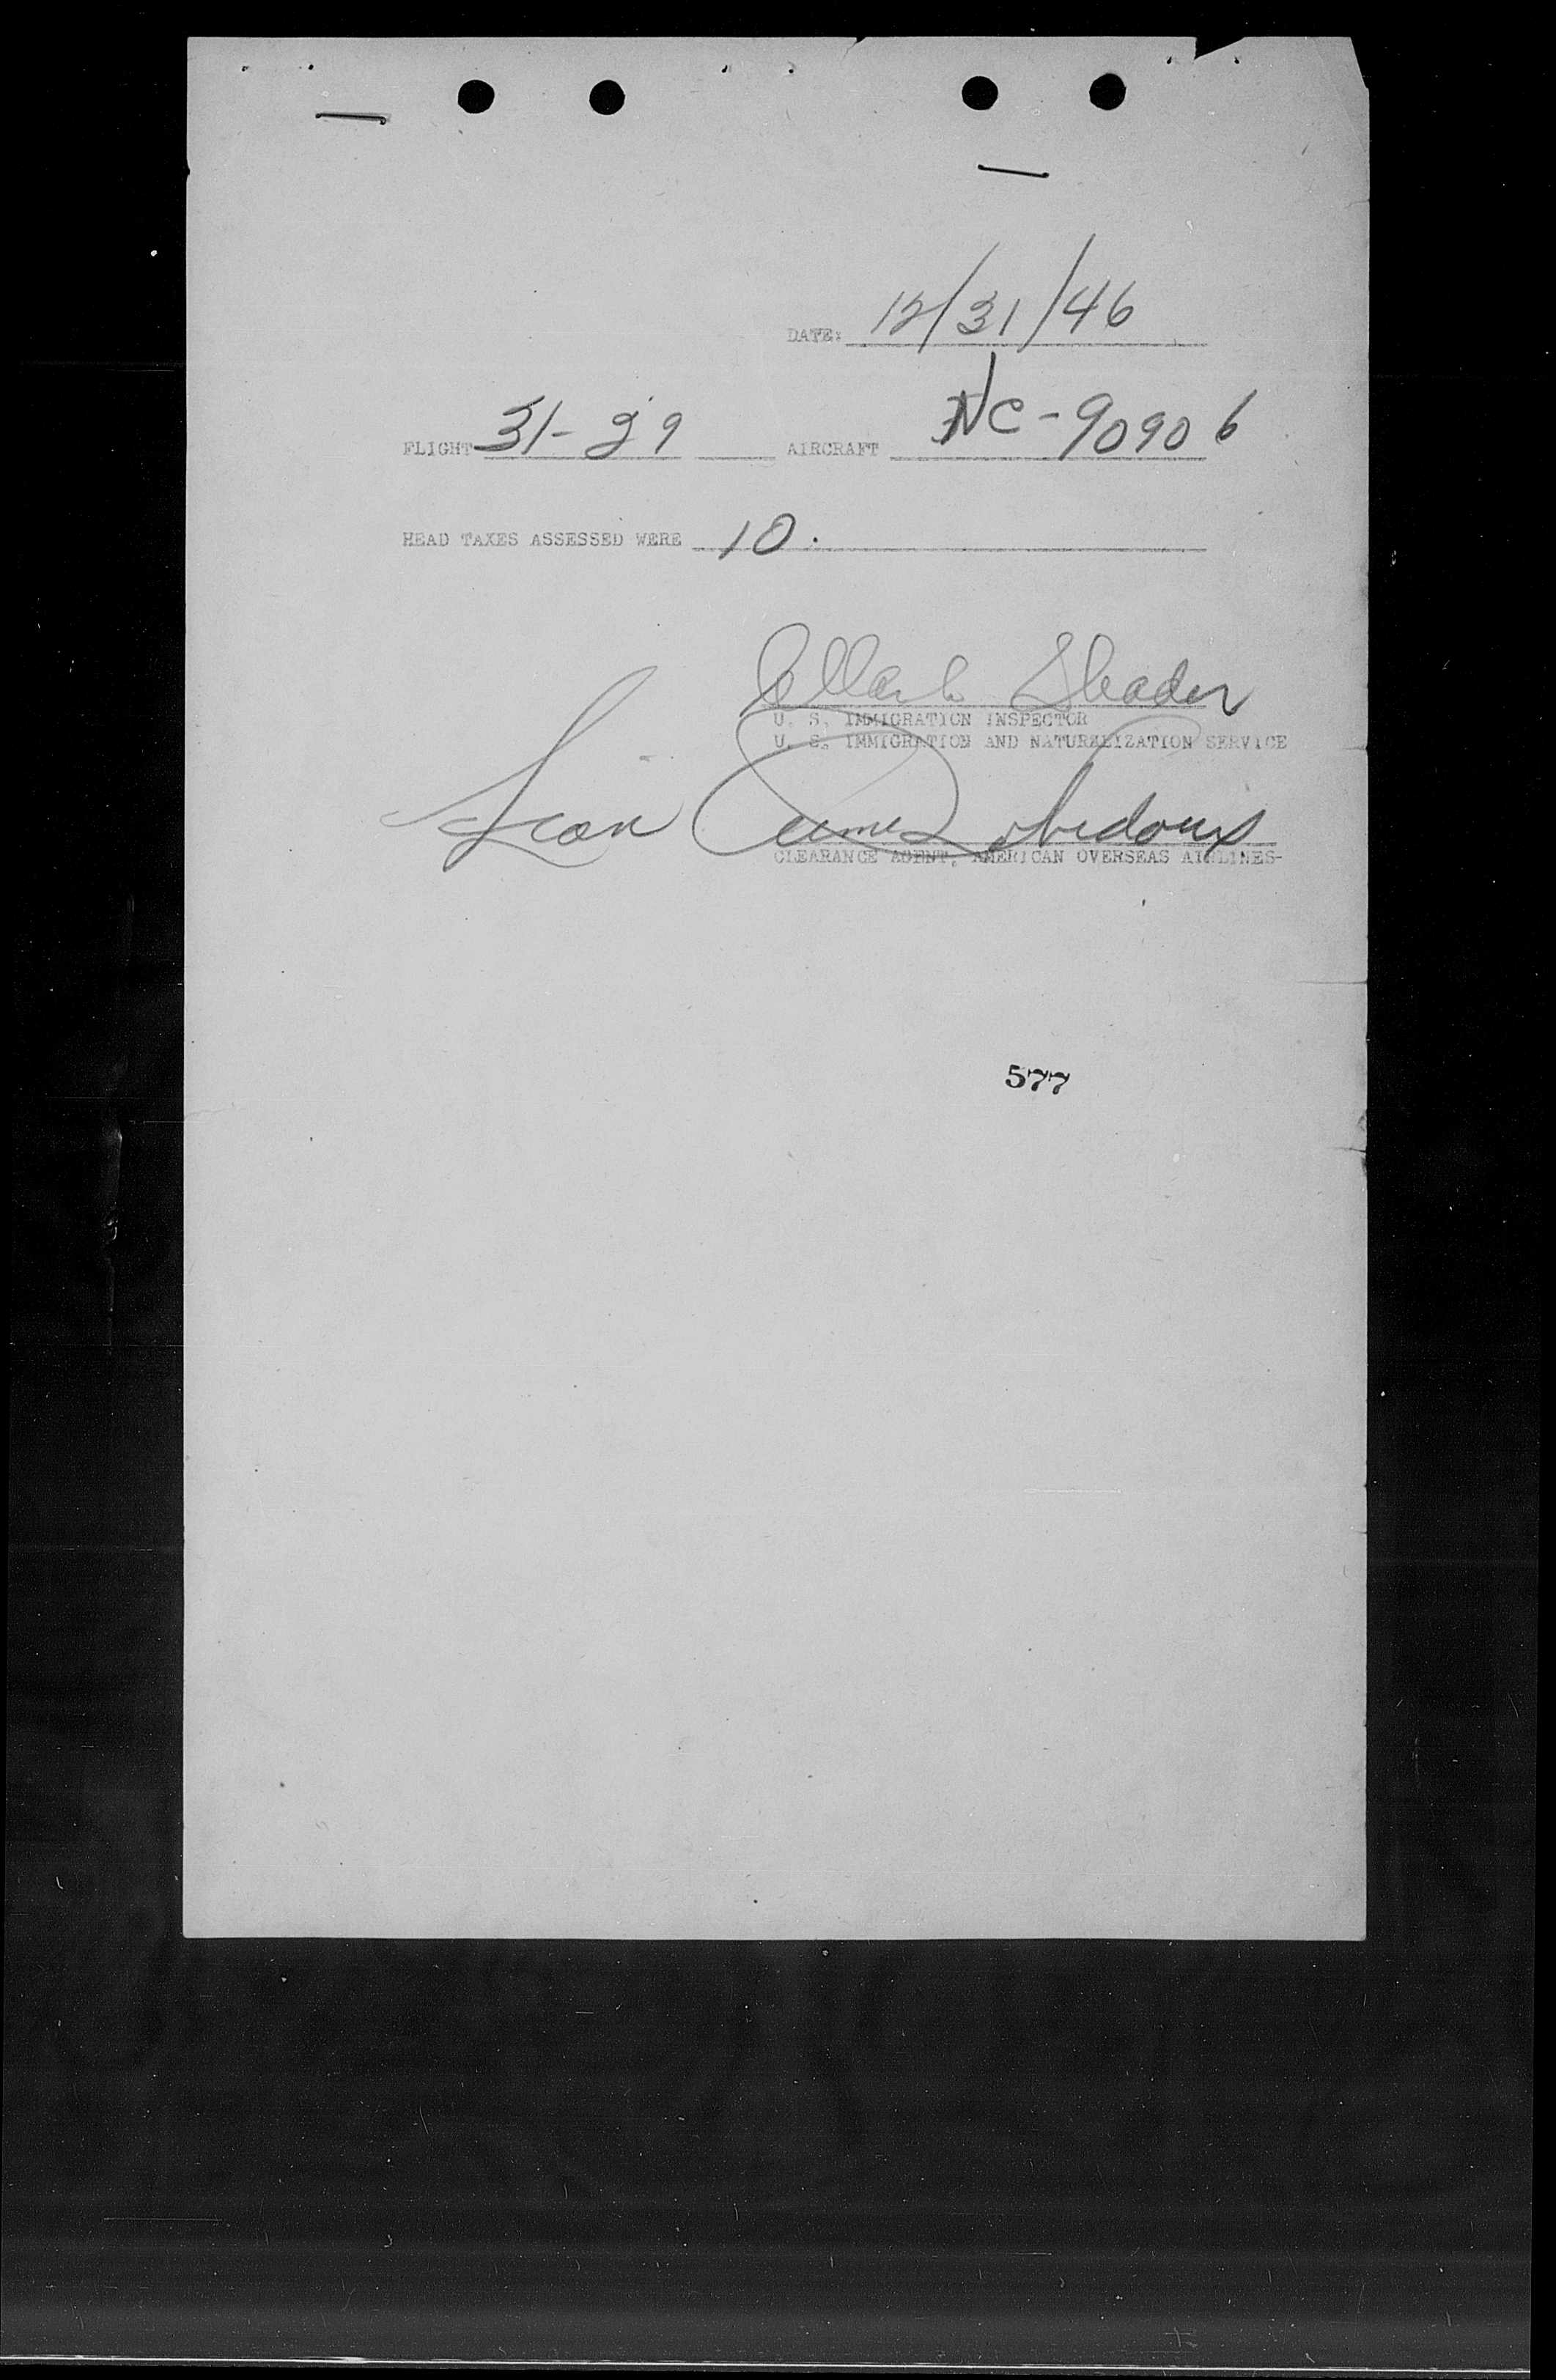 DATE: 12/31/46
FLIGHT 31-29 AIRCRAFT NC-90906
HEAD TAXES ASSESSED WERE 10.
U. S. IMMIGRATION INSPECTOR
U. S. IMMIGRATION AND NATURALIZATION SERVICE
CLEARANCE AGENT, AMERICAN OVERSEAS AIRLINES-
577